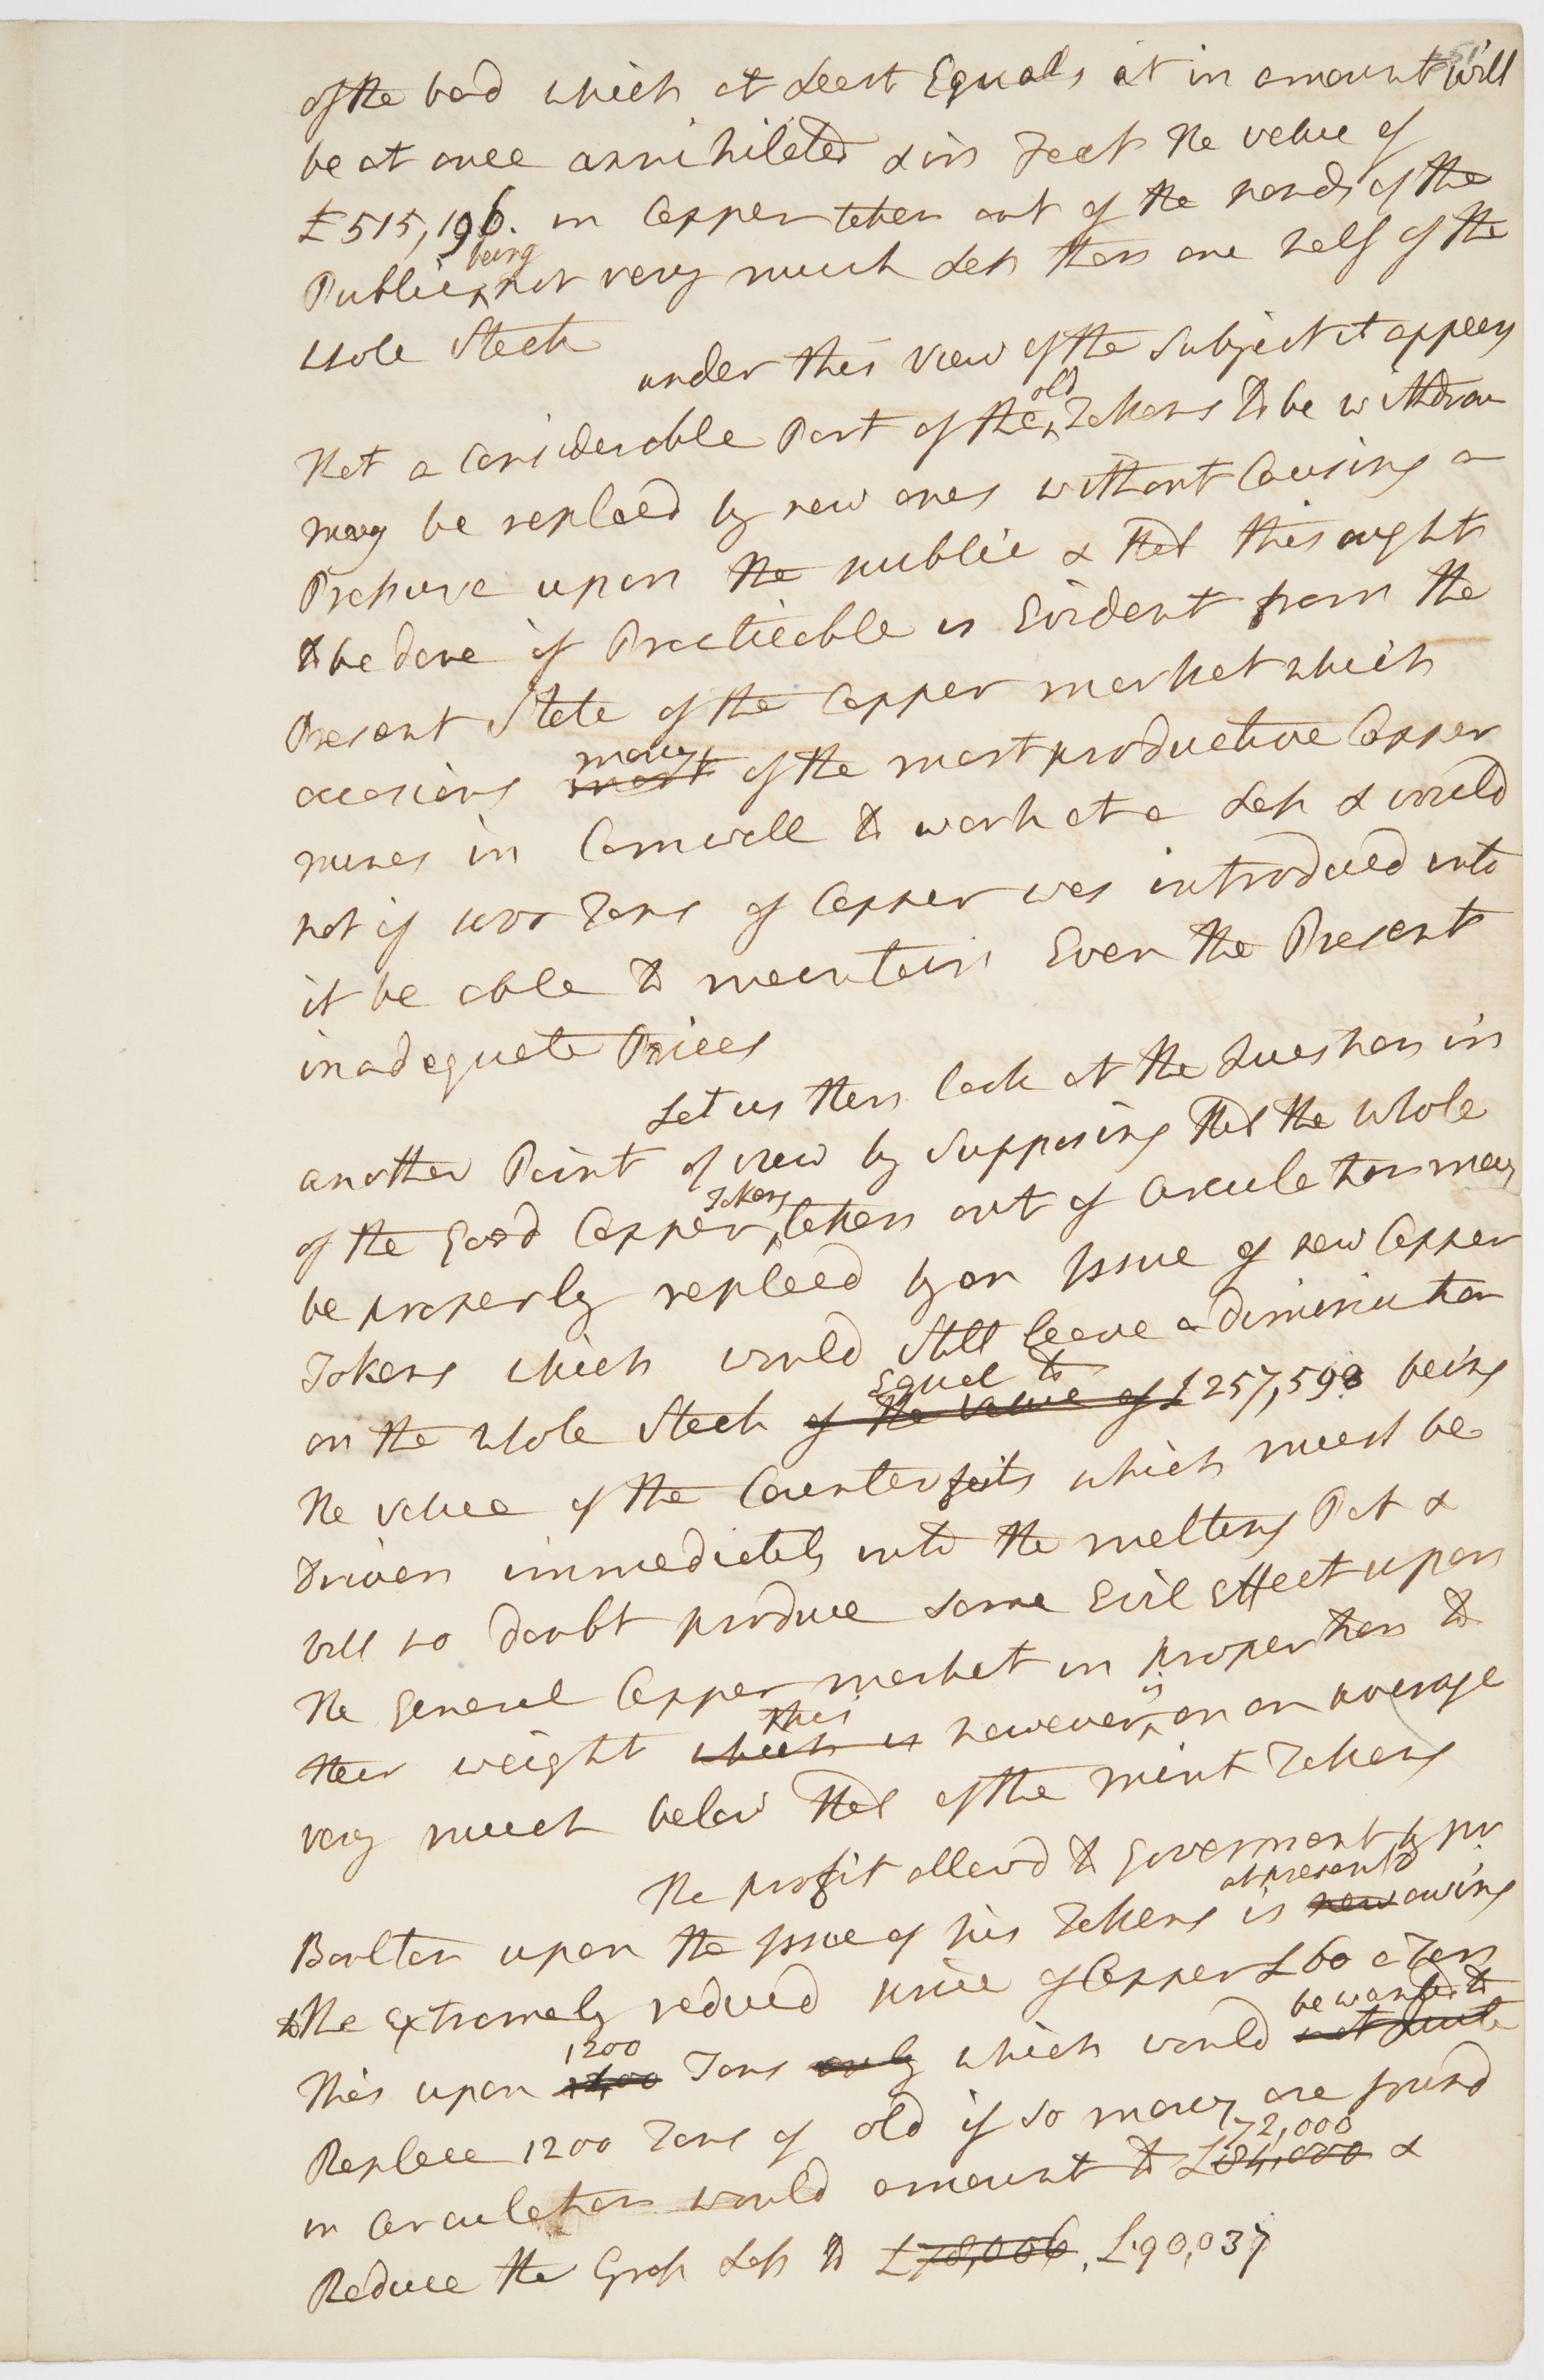 of the bad which at Least Equals it in amount will
be at once annihilated & in Fact the value of
£515,196. in Copper taken out of the hands of the
Public being not very much Less then one half of the
whole Stock
under this view of the Subject it appears
that a Considerable Part of the old Tokens to be withdrawn
may be replaced by new ones without Causing a
Pressure upon the public & that this ought
to be done if Practicable is Evident from the
Present State of the Copper market which
occasions most many of the most productive Copper
mines in Cornwall to work at a Loss & would
not if Tons of Copper was introduced into
it be able to maintain Even the Present
inadequate Prices
Let us then look at the Question in
another Point of view by Supposing that the whole
of the Good Copper Tokens taken out of Circulation may
be properly replaced by an Issue of new Copper
Tokens which would Still leave a diminution
on the whole Stock of the value of Equal to £257,598 being
the value of the Counterfeits which must be
driven immediately into the melting Pot &
will no doubt produce some Evil Effect upon
the General Copper market in proportion to
their weight which is this however is on an average
very much below that of the mint Tokens
The profit allowd to Government by mr
Boulton upon the Issue of his Tokens is now at present owing
to the Extremely reduced price of Copper £60 a Ton
This upon 1400 1200 Tons only which would not quite be wanted to
Replace 1200 Tons of old if so many are found
in Circulation would amount to £84,000 72,000 &
Reduce the Gross Loss to £78,006. £90,037